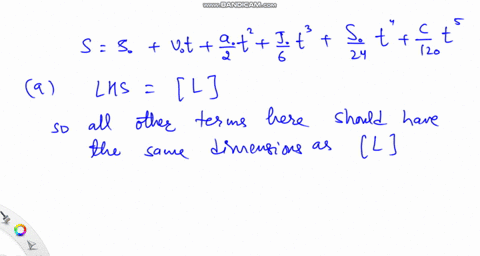 WWW.BANDICAM.COM
S = s₀ + v₀t + a₀/2 t² + J₀/6 t³ + S₀/24 t⁴ + C/120 t⁵
(a) LHS = [L]
so all other terms here should have
the same dimensions as [L]